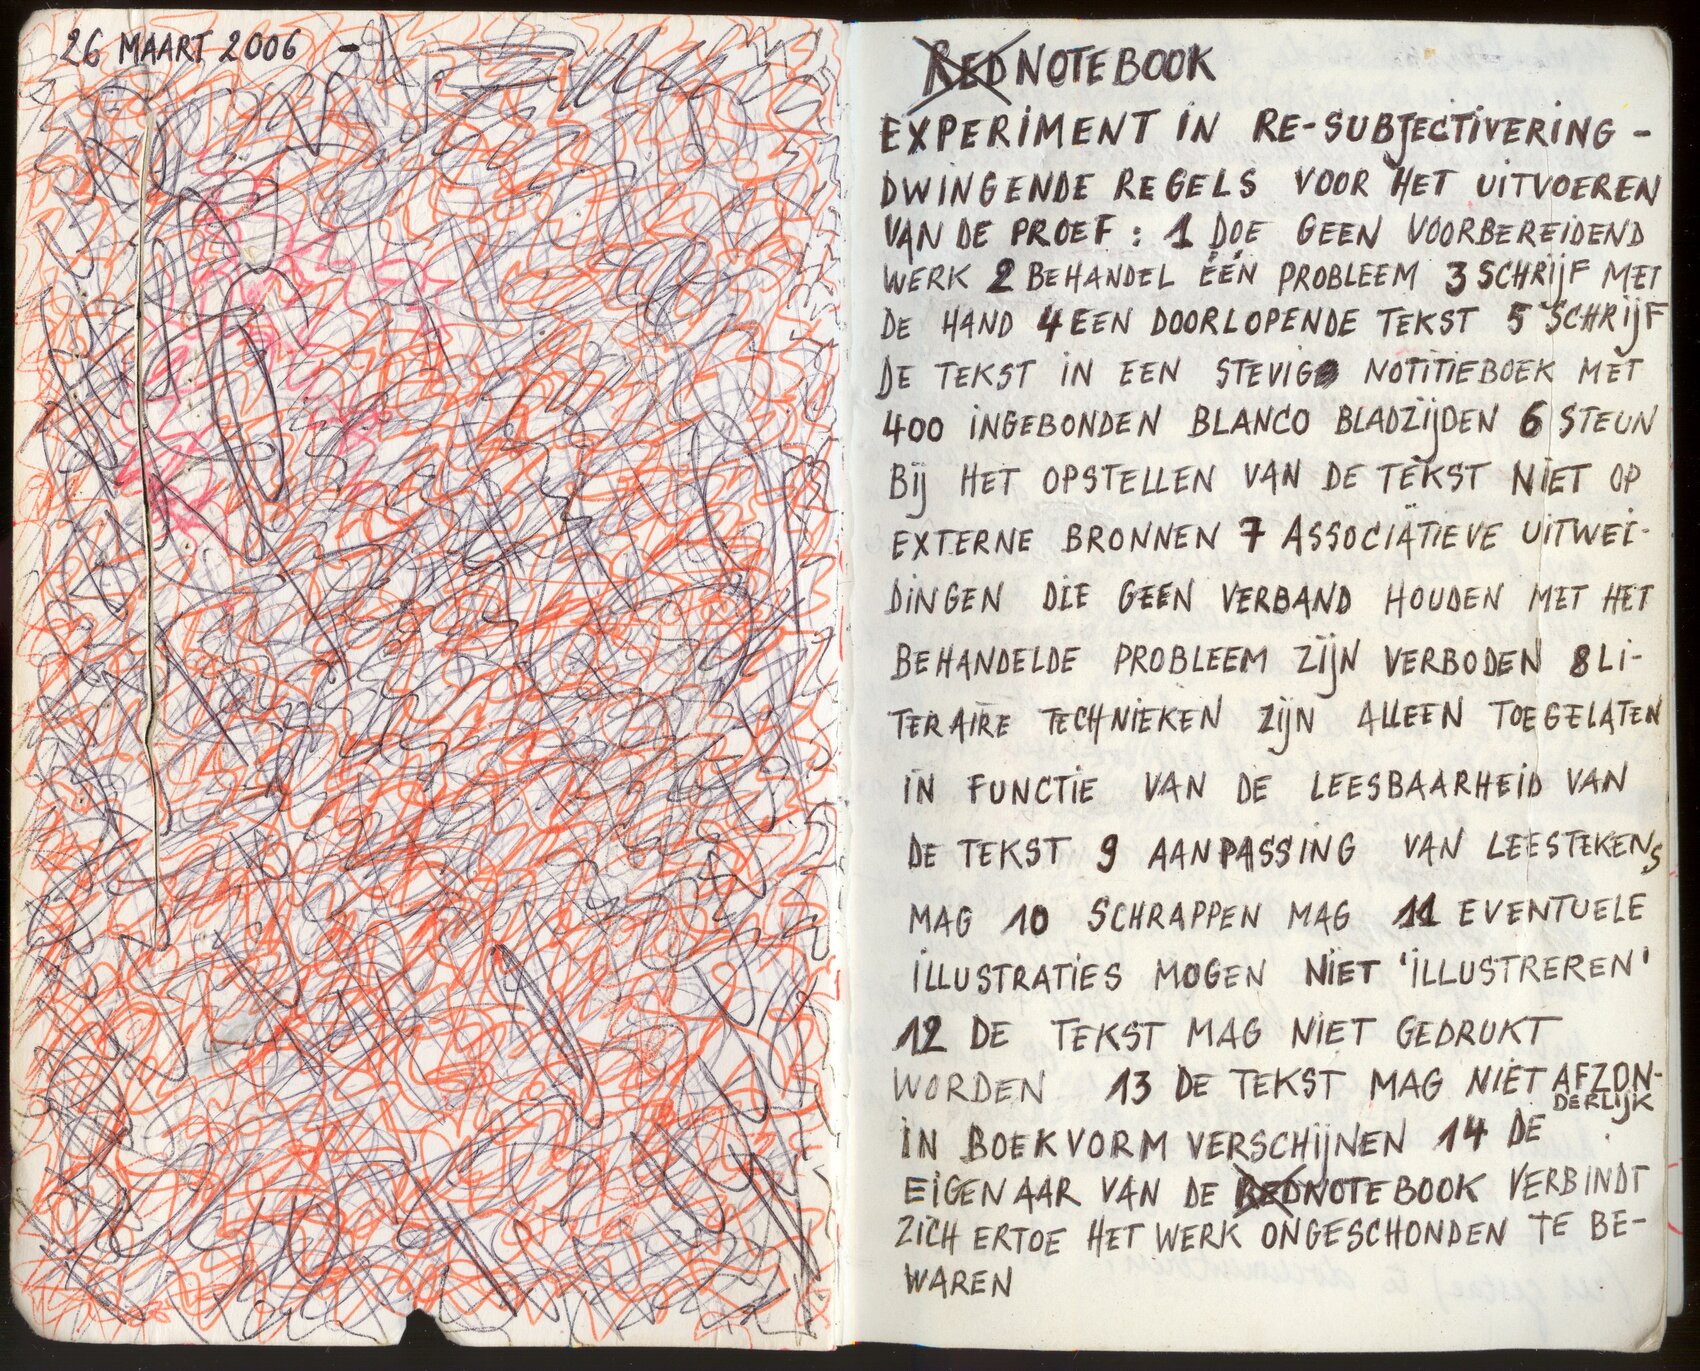 26 MAART 2006 -
REDNOTEBOOK
EXPERIMENT IN RE-SUBJECTIVERING -
DWINGENDE REGELS VOOR HET UITVOEREN
VAN DE PROEF : 1 DOE GEEN VOORBEREIDEND
WERK 2 BEHANDEL ÉÉN PROBLEEM 3 SCHRIJF MET
DE HAND 4 EEN DOORLOPENDE TEKST 5 SCHRIJF
DE TEKST IN EEN STEVIG NOTITIEBOEK MET
400 INGEBONDEN BLANCO BLADZIJDEN 6 STEUN
BIJ HET OPSTELLEN VAN DE TEKST NIET OP
EXTERNE BRONNEN 7 ASSOCIATIEVE UITWEI-
DINGEN DIE GEEN VERBAND HOUDEN MET HET
BEHANDELDE PROBLEEM ZIJN VERBODEN 8 LI-
TERAIRE TECHNIEKEN ZIJN ALLEEN TOEGELATEN
IN FUNCTIE VAN DE LEESBAARHEID VAN
DE TEKST 9 AANPASSING VAN LEESTEKENS
MAG 10 SCHRAPPEN MAG 11 EVENTUELE
ILLUSTRATIES MOGEN NIET 'ILLUSTREREN'
12 DE TEKST MAG NIET GEDRUKT
WORDEN 13 DE TEKST MAG NIET AFZON-
DERLIJK
IN BOEKVORM VERSCHIJNEN 14 DE
EIGENAAR VAN DE REDNOTEBOOK VERBINDT
ZICH ERTOE HET WERK ONGESCHONDEN TE BE-
WAREN